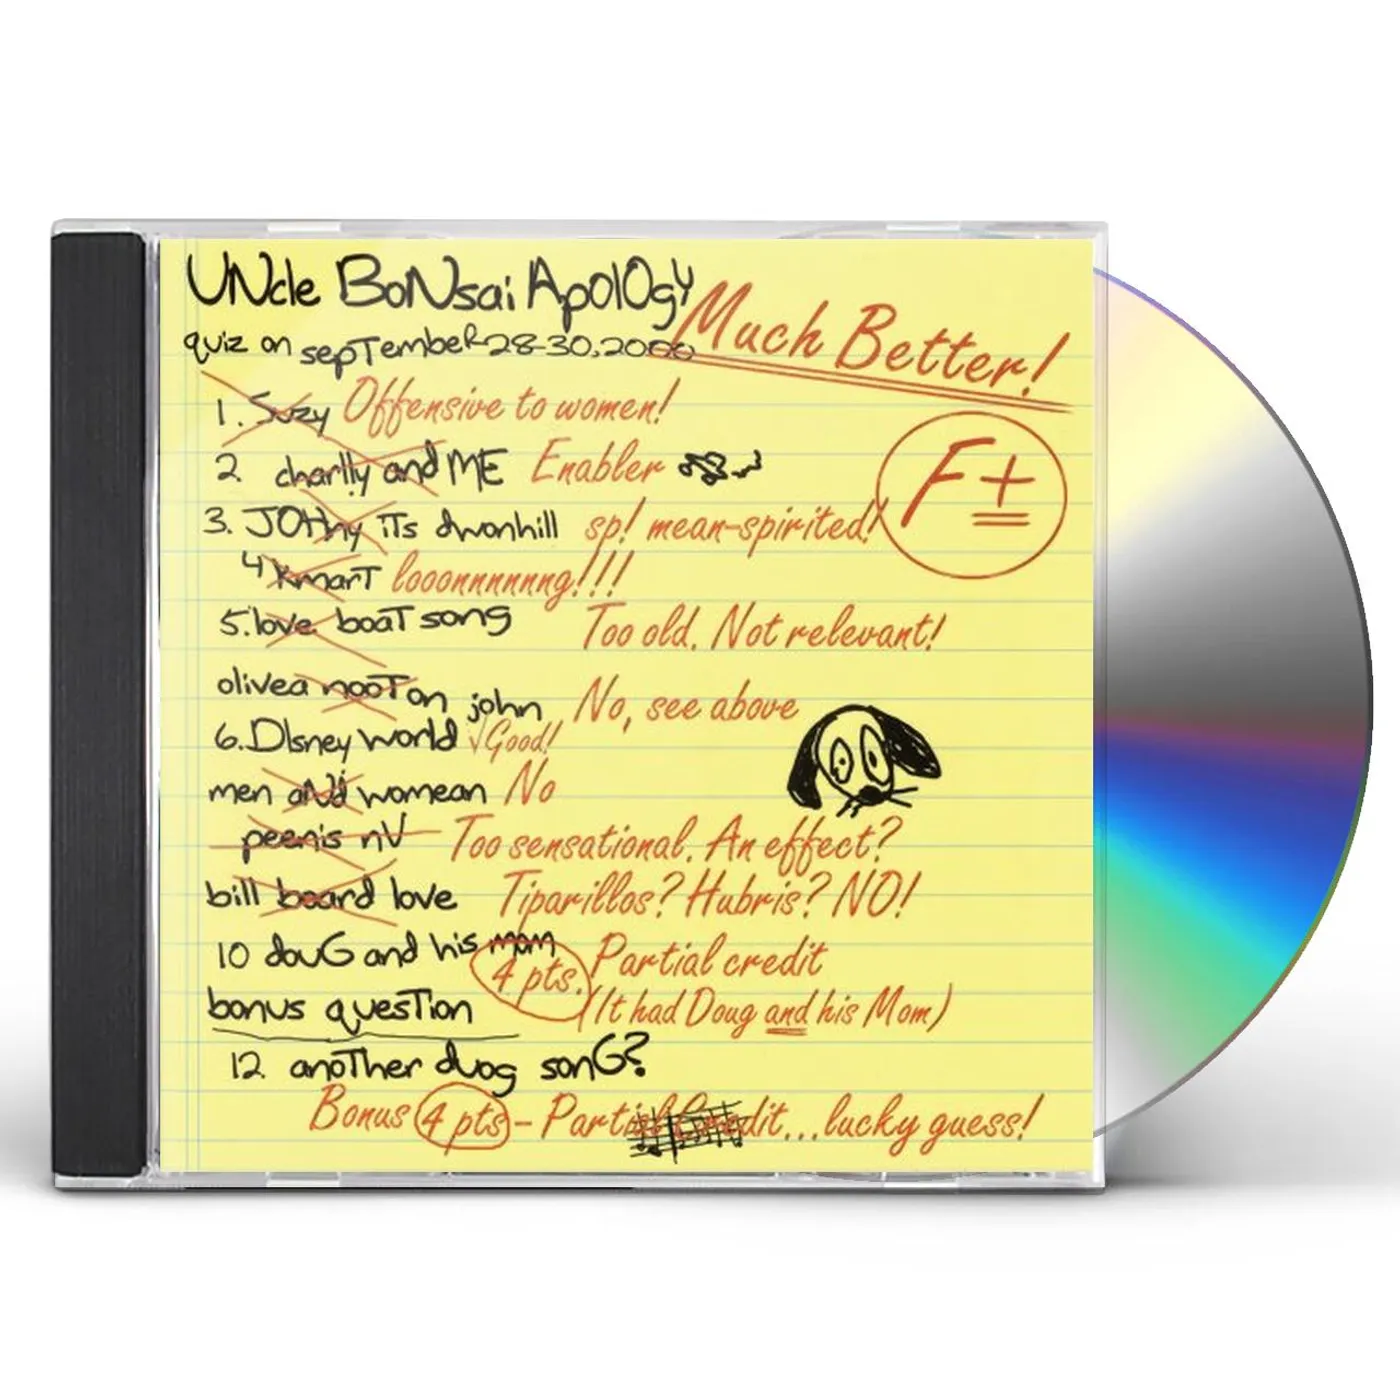 UNcle BoNsai ApolOgy
Much Better!
quiz on sepTembeR 28-30, 2000
F+
1. Suzy Offensive to women!
2 charlly and ME Enabler
3. JOHhy iTs dwonhill sp! mean-spirited!
4 KmarT looonnnnnng!!!
5. love boaT song Too old. Not relevant!
olivea nooT on john No, see above
6. DIsney world √Good!
men aNd womean No
peenis nV Too sensational. An effect?
bill board love Tiparillos? Hubris? NO!
10 douG and his mom Partial credit
4 pts.
bonus quesTion (It had Doug and his Mom)
12 anoTher duog sonG?
Bonus 4 pts - Partial Credit...lucky guess!